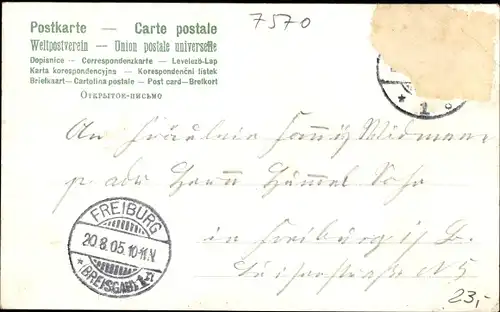 Postkarte — Carte postale
7570
Weltpostverein — Union postale universelle
Dopisnice — Correspondenzkarte — Levelező-Lap
Karta korespondencyjna — Korespondenční lístek
Briefkaart — Cartolina postale — Post card — Brefkort
Открытое письмо
* 1
An Fräulein Fanny Widmann
p. adr Herrn Himmel Sohn
in Freiburg i/ B.
N 5
FREIBURG
20.8.05.10-11.N
* (BREISGAU) 1
23,-